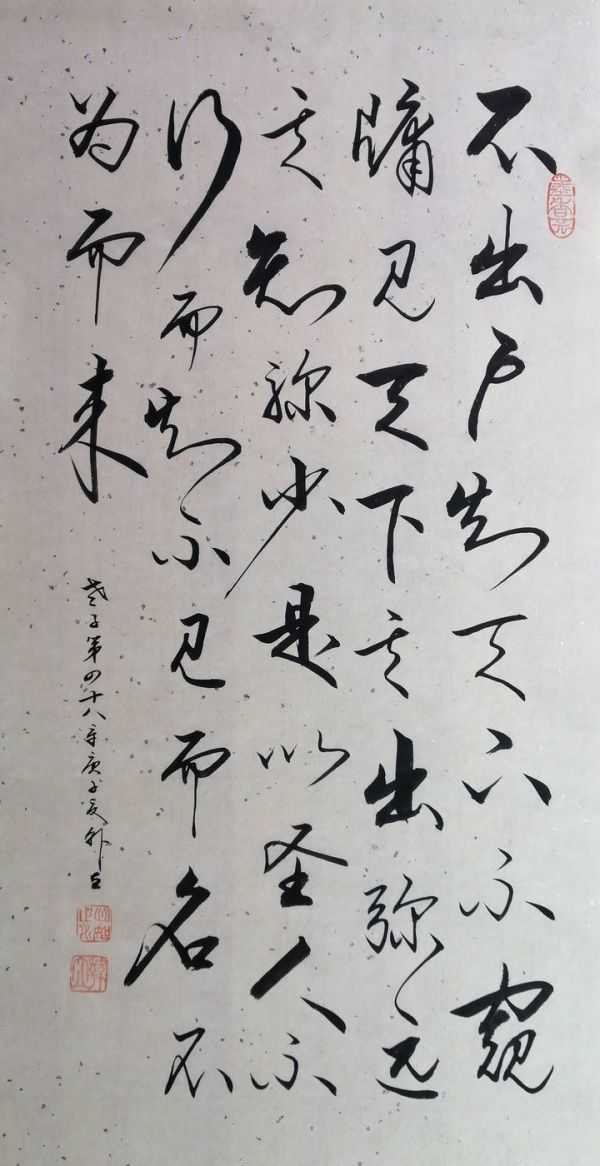 不出户知天下不窥
牖见天下其出弥远
其知弥少是以圣人不
行而知不见而名不
为而来
老子第四十八章庚子夏